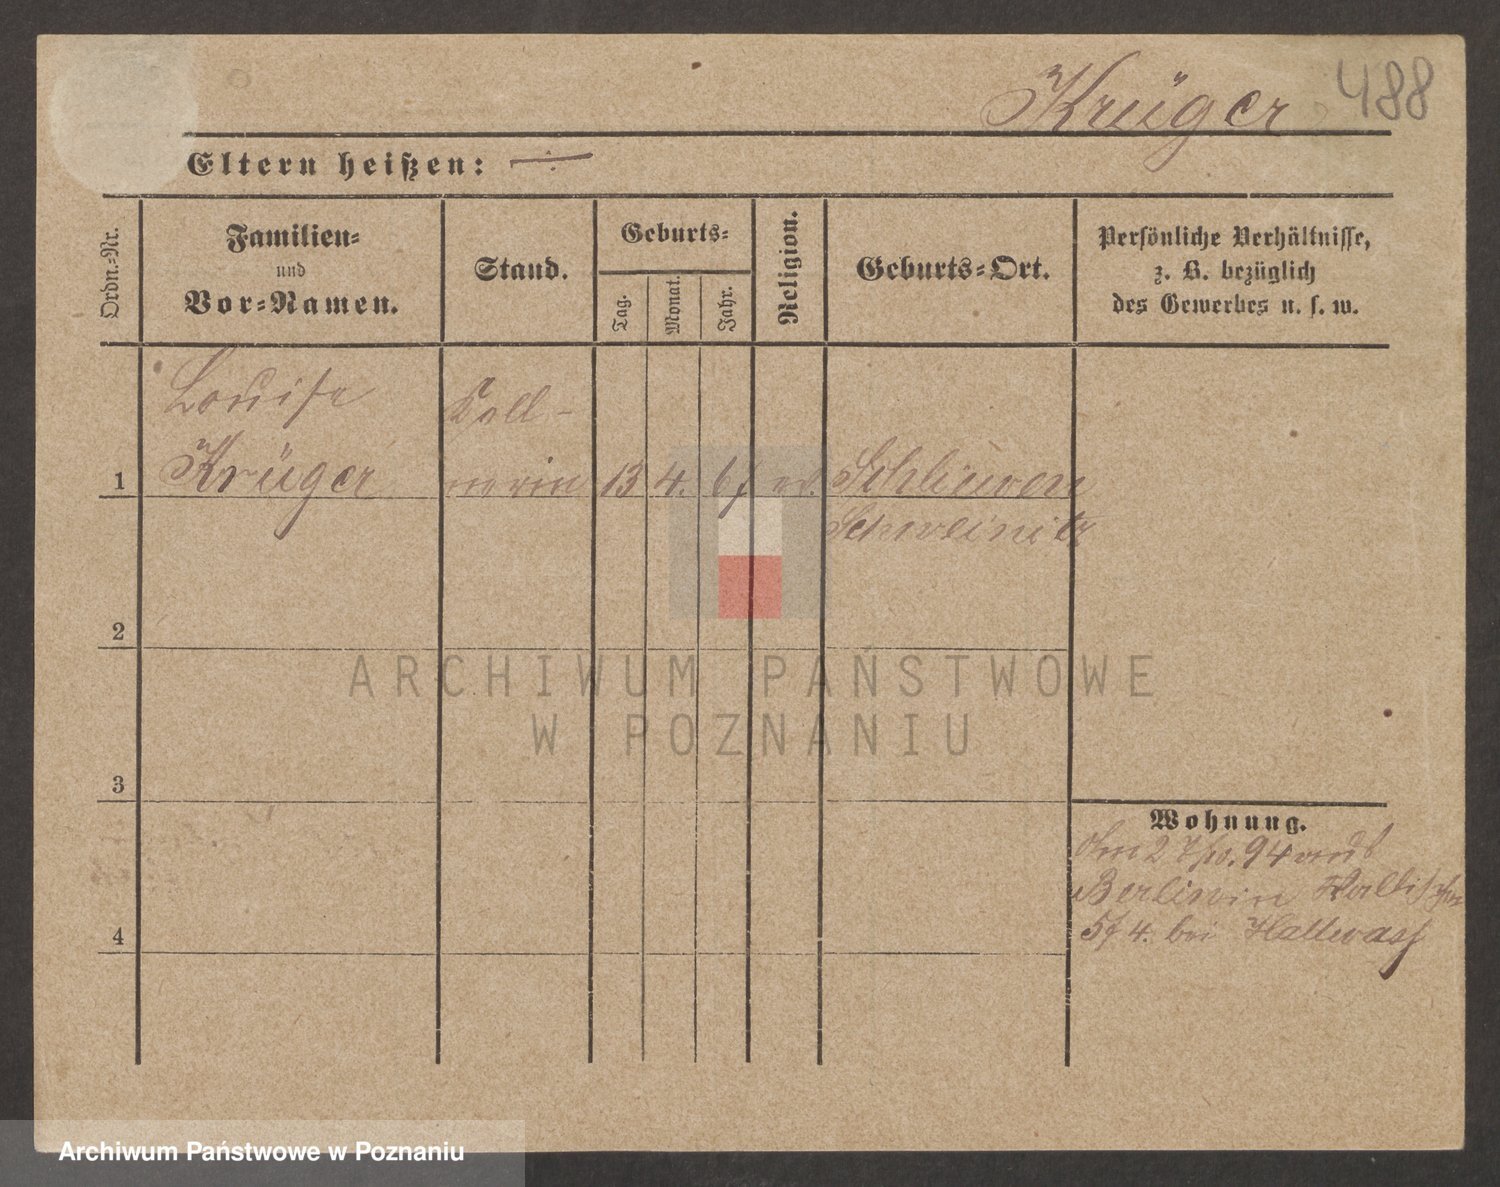 Krüger 488
Eltern heißen:
Ordn.-Nr.
Familien-
und
Vor-Namen.
Stand.
Geburts-
Tag.
Monat.
Jahr.
Religion.
Geburts-Ort.
Persönliche Verhältnisse,
z. B. bezüglich
des Gewerbes u. s. w.
Louise
Krüger
Kell-
nerin
13 4. 67 ev.
Schlieven
Schweinitz
1
2
3
4
Wohnung.
2 94 aus
Berlin in
4. bei Hallwass
ARCHIWUM PAŃSTWOWE
W POZNANIU
Archiwum Państwowe w Poznaniu